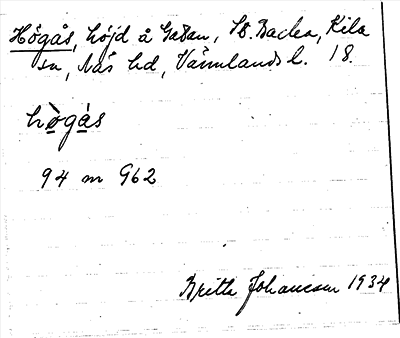 Högås, höjd å Gatan, St. Backa, Kila
sn, Näs hd, Värmlands l. 18.
hògàs
94 m 962
Britta Johansson 1934